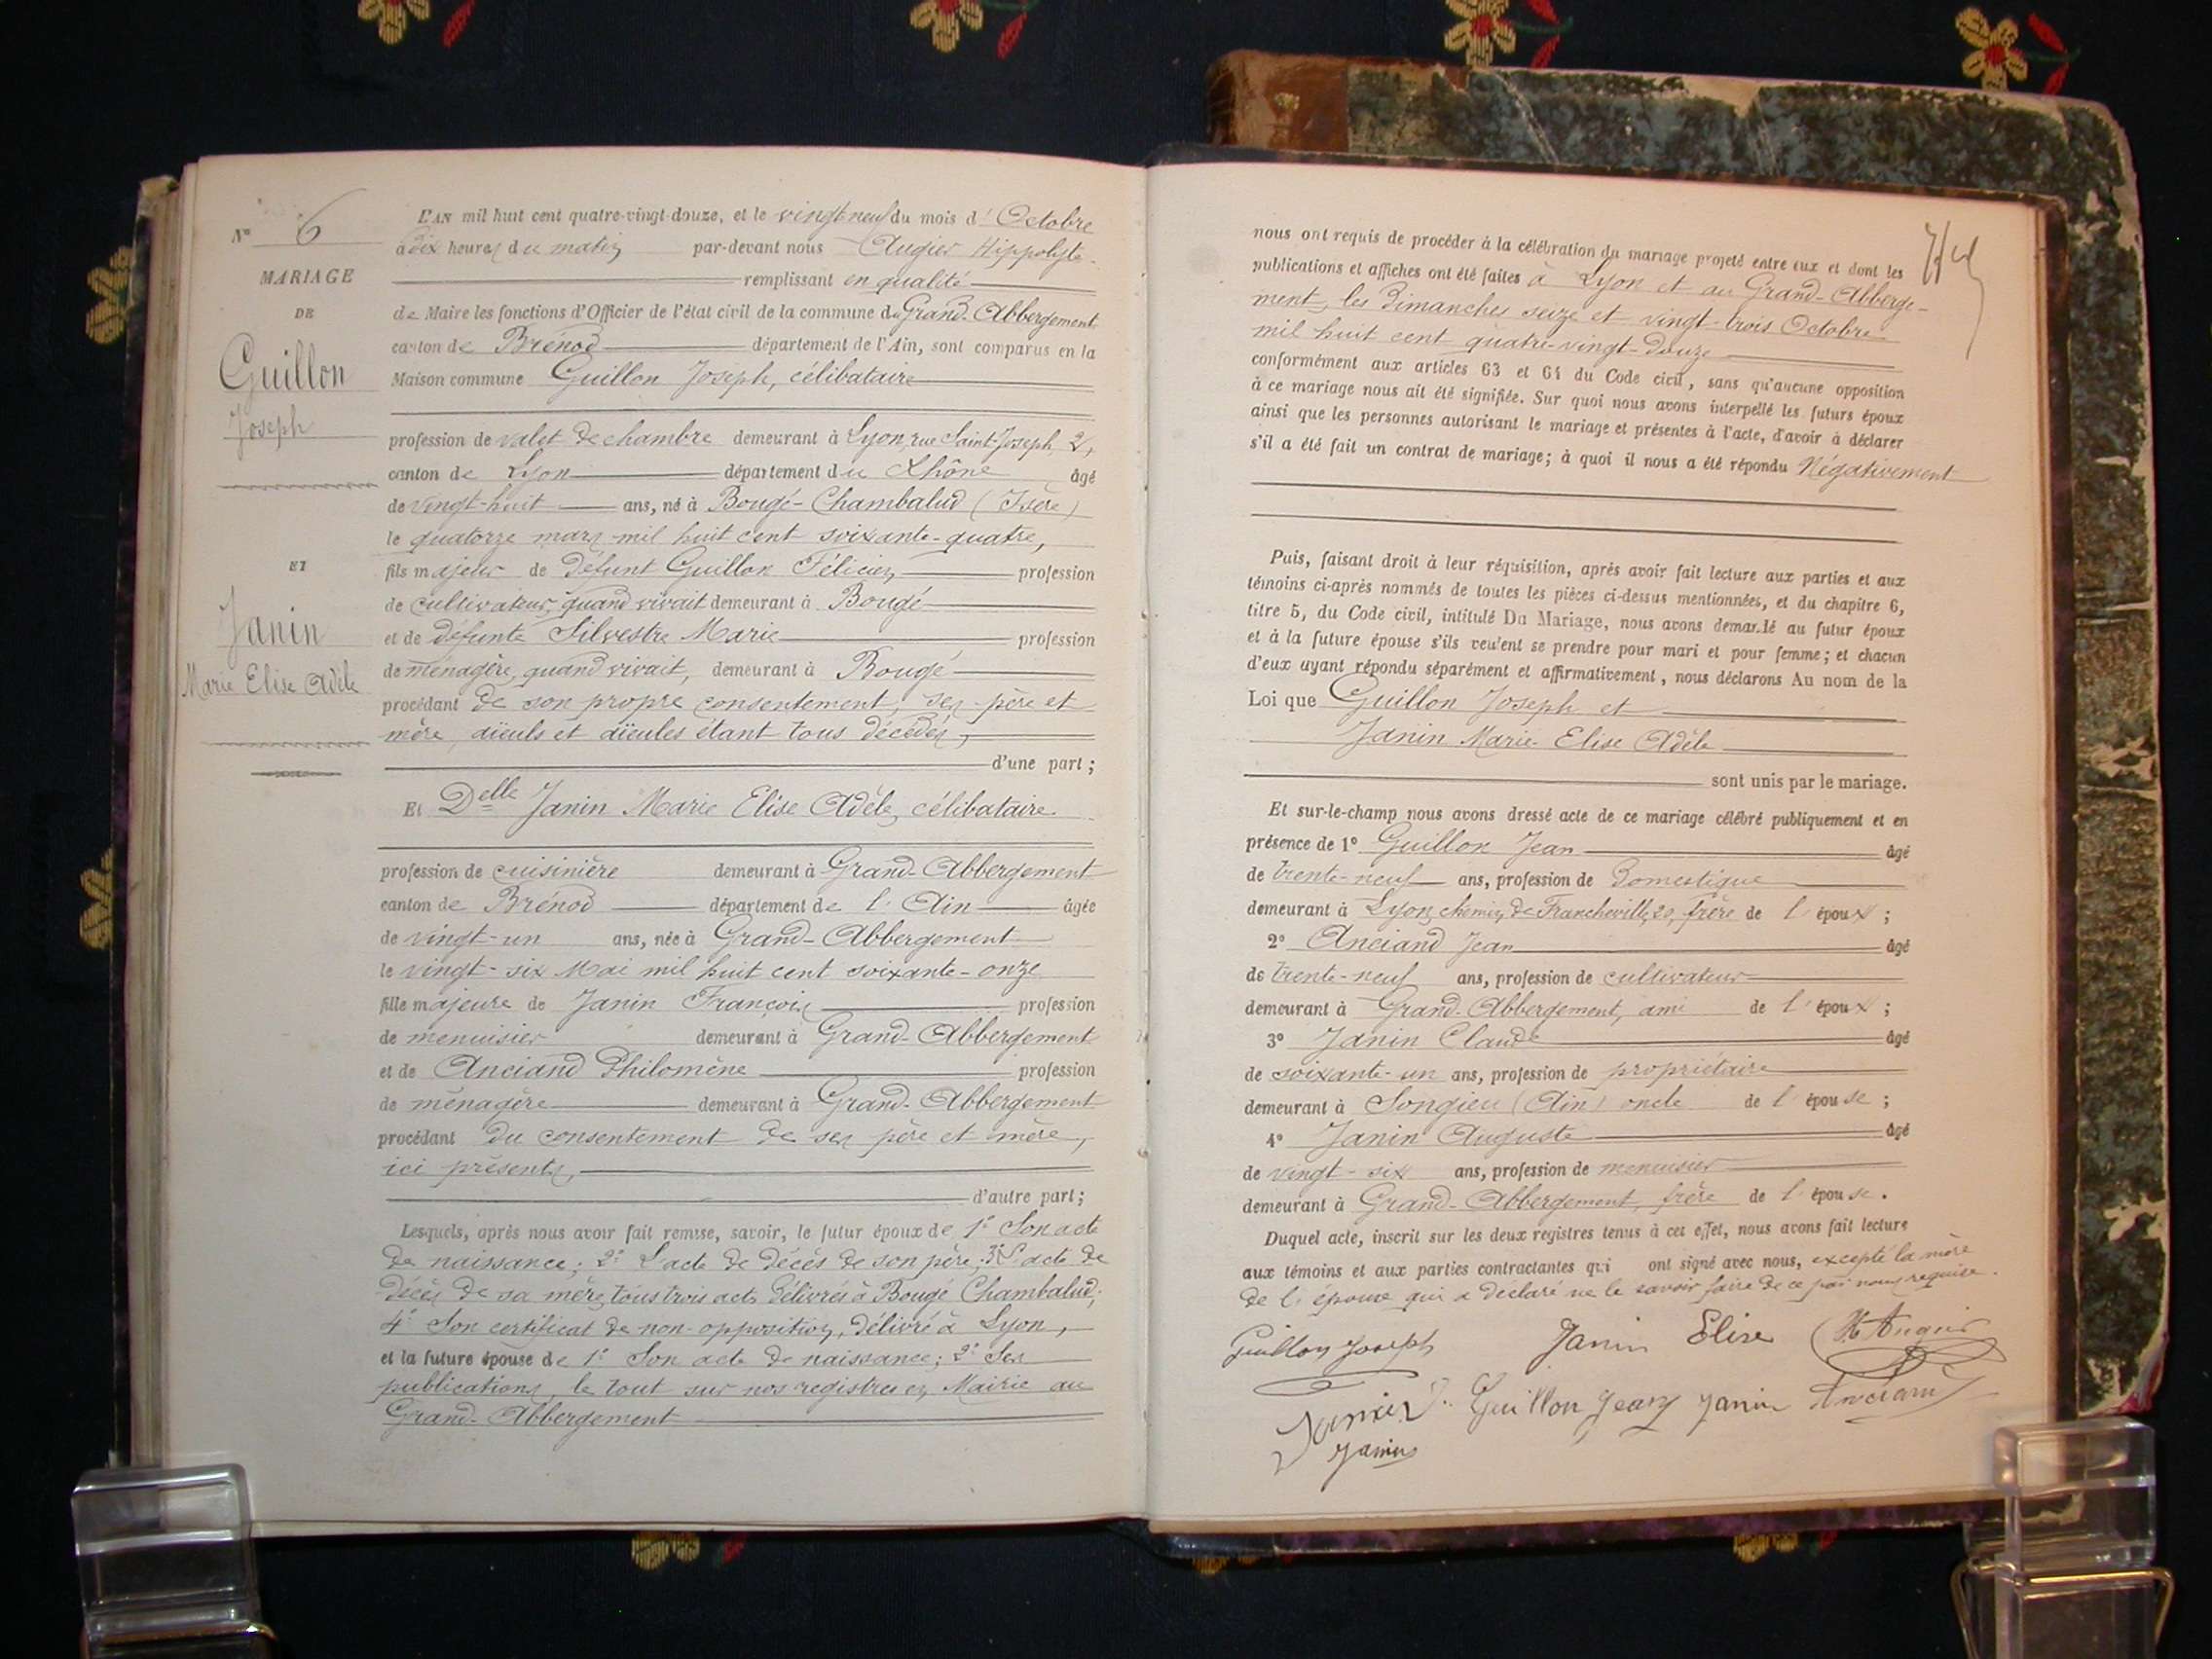 N° 6
MARIAGE
DE
Guillon
Joseph
ET
Janin
Marie Elise Adèle
L'AN mil huit cent quatre-vingt-douze, et le vingt neuf du mois d' Octobre
à dix heures du matin par-devant nous Augier Hippolyte
remplissant en qualité
de Maire les fonctions d'Officier de l'état civil de la commune du Grand-Abbergement
canton de Brénod département de l'Ain, sont comparus en la
Maison commune Guillon Joseph, célibataire
profession de valet de chambre demeurant à Lyon, rue Saint-Joseph, 2,
canton de Lyon département du Rhône âgé
de vingt-huit ans, né à Bougé-Chambalud (Isère)
le quatorze mars mil huit cent soixante-quatre,
fils majeur de défunt Guillon Félicien profession
de cultivateur, quand vivait demeurant à Bougé
et de défunte Silvestre Marie profession
de ménagère, quand vivait, demeurant à Bougé
procédant de son propre consentement, ses père et
mère, aïeuls et aïeules étant tous décédés,
d'une part ;
Et Delle Janin Marie Elise Adèle, célibataire
profession de cuisinière demeurant à Grand-Abbergement
canton de Brénod département de l'Ain âgée
de vingt-un ans, née à Grand-Abbergement
le vingt-six Mai mil huit cent soixante-onze
fille majeure de Janin François profession
de menuisier demeurant à Grand-Abbergement
et de Anciand Philomène profession
de ménagère demeurant à Grand-Abbergement
procédant du consentement de ses père et mère,
ici présents,
d'autre part ;
Lesquels, après nous avoir fait remise, savoir, le futur époux de 1° Son acte
de naissance ; 2° L'acte de décès de son père ; 3° L'acte de
décès de sa mère, tous trois acts délivrés à Bougé Chambalud ;
4° Son certificat de non-opposition, délivré à Lyon,
et la future épouse de 1° Son acte de naissance ; 2° Ses
publications, le tout sur nos registres en Mairie au
Grand-Abbergement
nous ont requis de procéder à la célébration du mariage projeté entre eux et dont les
publications et affiches ont été faites à Lyon et au Grand-Abberge-
ment, les Dimanches seize et vingt-trois Octobre
mil huit cent quatre-vingt-douze
conformément aux articles 63 et 64 du Code civil, sans qu'aucune opposition
à ce mariage nous ait été signifiée. Sur quoi nous avons interpellé les futurs époux
ainsi que les personnes autorisant le mariage et présentes à l'acte, d'avoir à déclarer
s'il a été fait un contrat de mariage ; à quoi il nous a été répondu Négativement
Puis, faisant droit à leur réquisition, après avoir fait lecture aux parties et aux
témoins ci-après nommés de toutes les pièces ci-dessus mentionnées, et du chapitre 6,
titre 5, du Code civil, intitulé Du Mariage, nous avons demandé au futur époux
et à la future épouse s'ils veulent se prendre pour mari et pour femme ; et chacun
d'eux ayant répondu séparément et affirmativement, nous déclarons Au nom de la
Loi que Guillon Joseph et
Janin Marie Elise Adèle
sont unis par le mariage.
Et sur-le-champ nous avons dressé acte de ce mariage célébré publiquement et en
présence de 1° Guillon Jean âgé
de trente-neuf ans, profession de Domestique
demeurant à Lyon, chemin de Francheville, 20, frère de l'époux ;
2° Anciand Jean âgé
de trente-neuf ans, profession de cultivateur
demeurant à Grand-Abbergement, ami de l'époux ;
3° Janin Claude âgé
de soixante-un ans, profession de propriétaire
demeurant à Songieu (Ain) oncle de l'épouse ;
4° Janin Auguste âgé
de vingt-six ans, profession de menuisier
demeurant à Grand-Abbergement, frère de l'épouse.
Duquel acte, inscrit sur les deux registres tenus à cet effet, nous avons fait lecture
aux témoins et aux parties contractantes qui ont signé avec nous, excepté la mère
de l'épouse qui a déclaré ne le savoir faire de ce par nous requise.
Guillon Joseph Janin Elise H Augier
Guillon Jean Janin Anciand
Janin